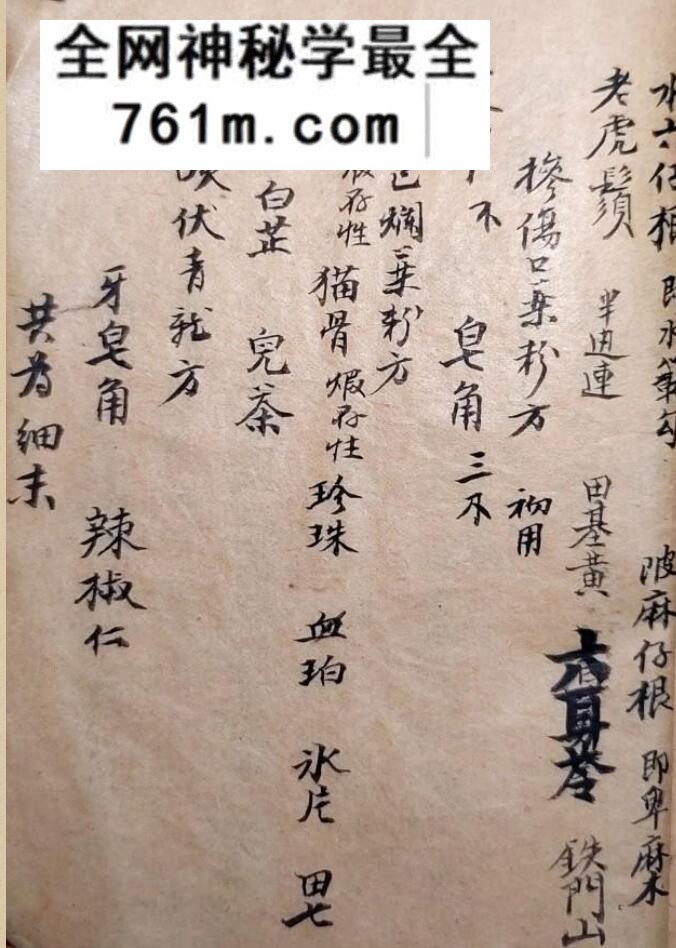 全网神秘学最全
761m.com
水六仔根 即水 陂麻仔根 即卑麻
老虎鬚 半边連 田基黄 鉄門山
掺傷口葉粉方 初用
不 皂角 三不
爛葉粉方
存性 猫骨 煅存性 珍珠 血珀 氷片 田七
白芷 兒茶
伏青龍方
牙皂角 辣椒仁
共为细末